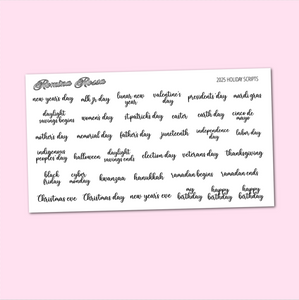 Romina Rossa
2025 HOLIDAY SCRIPTS
new year's day mlk jr. day lunar new year valentine's day presidents' day mardi gras
daylight savings begins women's day st patrick's day easter earth day cinco de mayo
mother's day memorial day father's day juneteenth independence day labor day
indigenous peoples day halloween daylight savings ends election day veterans day thanksgiving
black friday cyber monday kwanzaa hanukkah ramadan begins ramadan ends
Christmas eve Christmas day new year's eve my birthday happy birthday happy birthday